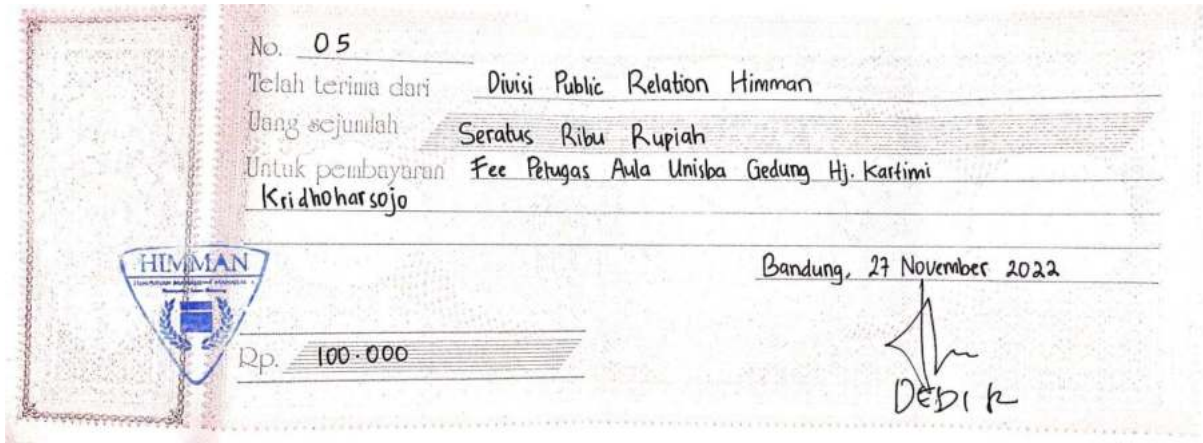 No. 05
Telah terima dari Divisi Public Relation Himman
Uang sejumlah Seratus Ribu Rupiah
Untuk pembayaran Fee Petugas Aula Unisba Gedung Hj. Kartimi
Kridhoharsojo
HIMMAN
Bandung, 27 November 2022
Rp. 100.000
DEDI K